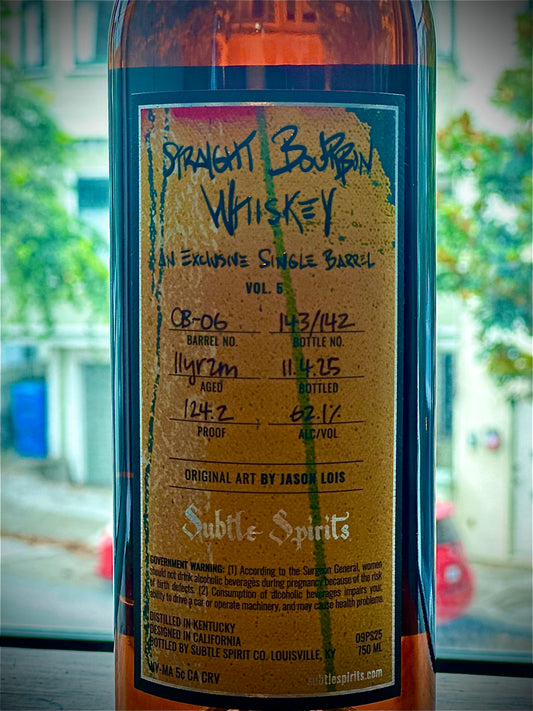 STRAIGHT BOURBON
WHISKEY
AN EXCLUSIVE SINGLE BARREL
VOL. 6
CB-06 143/142
BARREL NO. BOTTLE NO.
11yr2m 11.4.25
AGED BOTTLED
124.2 62.1%
PROOF ALC/VOL
ORIGINAL ART BY JASON LOIS
Subtle Spirits
GOVERNMENT WARNING: (1) According to the Surgeon General, women
should not drink alcoholic beverages during pregnancy because of the risk
of birth defects. (2) Consumption of alcoholic beverages impairs your
ability to drive a car or operate machinery, and may cause health problems
DISTILLED IN KENTUCKY
DESIGNED IN CALIFORNIA 09PS25
BOTTLED BY SUBTLE SPIRIT CO. LOUISVILLE, KY 750 ML
-MA 5¢ CA CRV subtlespirits.com